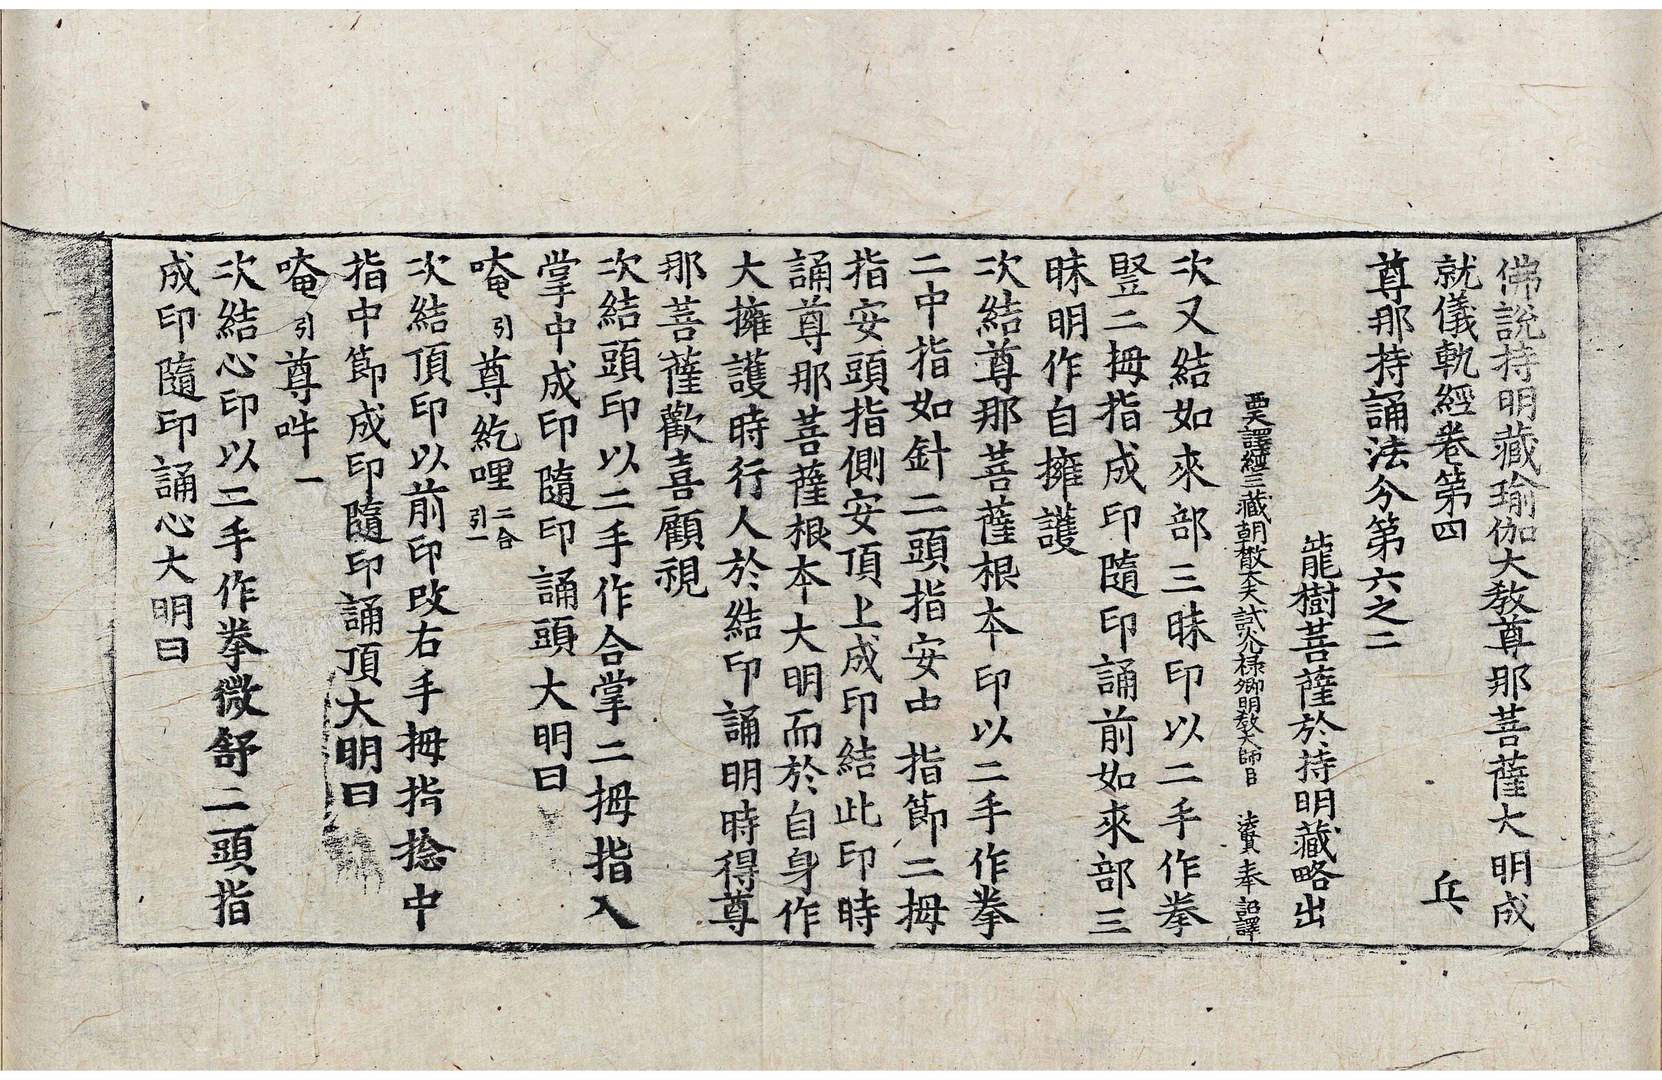 佛說持明藏瑜伽大教尊那菩薩大明成
就儀軌經卷第四　兵
尊那持誦法分第六之二
龍樹菩薩於持明藏略出
西天譯經三藏朝散大夫試光祿卿明教大師臣　法賢奉　詔譯
次又結如來部三昧印以二手作拳
竪二拇指成印隨印誦前如來部三
昧明作自擁護
次結尊那菩薩根本印以二手作拳
二中指如針二頭指安中指節二拇
指安頭指側安頂上成印結此印時
誦尊那菩薩根本大明而於自身作
大擁護時行人於結印誦明時得尊
那菩薩歡喜顧視
次結頭印以二手作合掌二拇指入
掌中成印隨印誦頭大明曰
唵引尊紇哩二合引一
次結頂印以前印改右手拇指捻中
指中節成印隨印誦頂大明曰
唵引尊吽一
次結心印以二手作拳微舒二頭指
成印隨印誦心大明曰